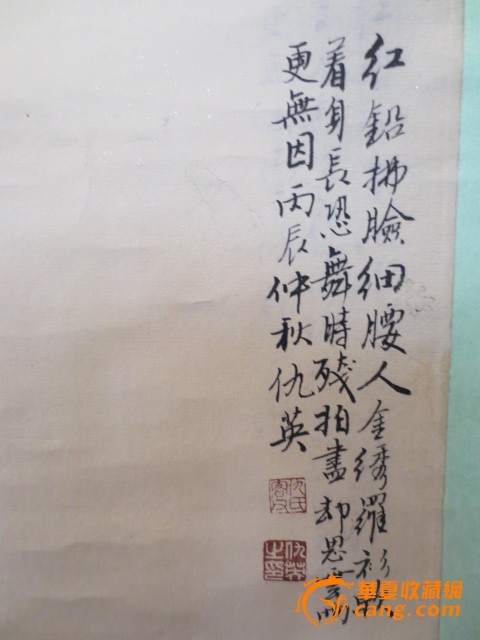 红鉛拂臉細腰人金绣羅衫軟
着身長恐舞時殘拍盡却思雲雨
更無因丙辰仲秋仇英
仇英之印
華夏收藏網
cang.com